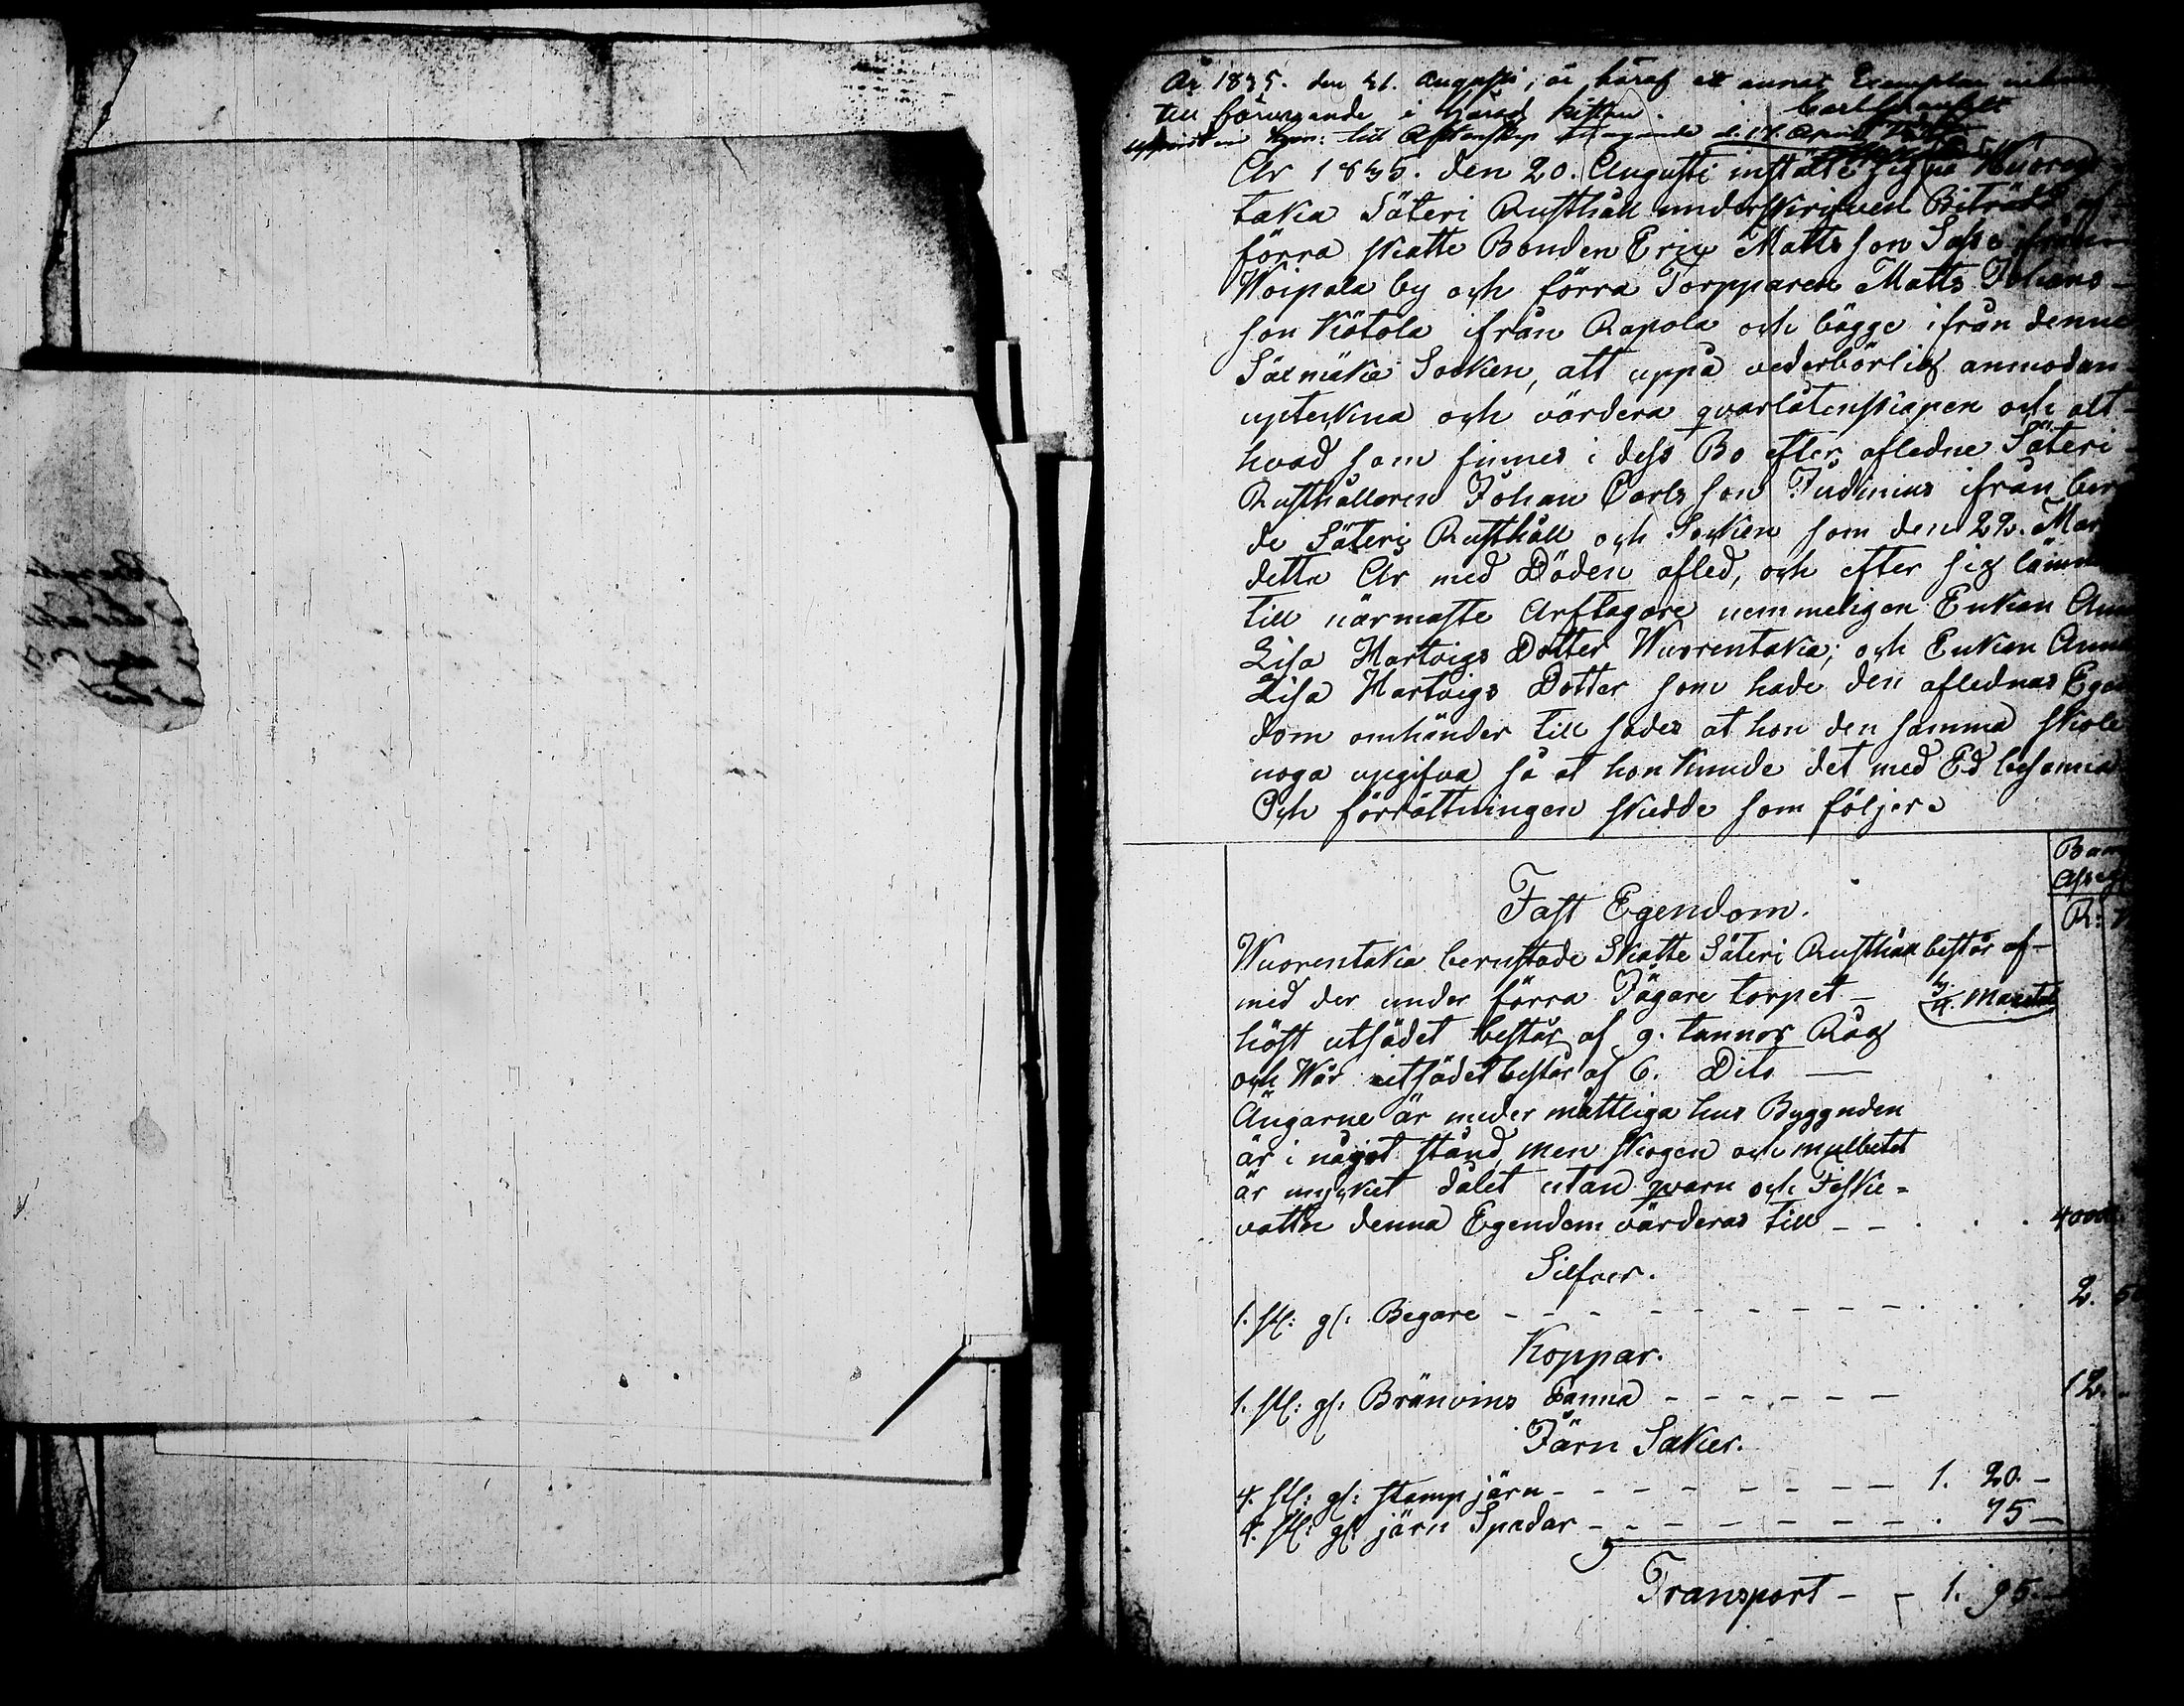 År 1835. den 31. Augusti, är häraf ett annat Exemplar
till förvarande i Härads kistan.
d. 17. April
År 1835. den 20. Augusti instälte sig på Wuoren-
taka Säteri Rusthåll underskrifven Biträdd af
förra skatte Bonden Eric Mattsson Saxe ifrån
Woipala by och förra Torpparen Matts Johans-
son Kötola ifrån Rapola och bägge ifrån denne
Säxmäki Socken, att uppå vederbörlig anmodan
upteckna och värdera qvarlåtenskapen och alt
hvad som finnes i dess Bo efter afledne Säteri
Rusthållaren Johan Carlsson Judinius ifrån ber
de Säteri Rusthåll och Socken som den 22. Mar
detta År med Döden afled, och efter sig lämn
till närmaste Arftagare nemmeligen Enkan Ann
Lisa Hartvigs Dotter Wuorentaka; och Enkan Anna
Lisa Hartvigs Dotter som hade den aflednas Egen
dom omhänder till sades at hon den samma skole
noga upgifva så at hon kunde det med Ed besanna
Och förrättningen skedde som följer
Banc
Asseg
R:
Fast Egendom.
Wuorentaka berustade Skatte Säteri Rusthåll består af
med der under förra Jägare torpet - Mantal
höst utsädet består af 9. tunnor Råg
och Wår utsädet består af 6. Dito
Ängarne är meder måttliga hus Byggnden
är i något stånd, men skogen och mulbetet
är mycket dålet utan qvarn och Fiske=
vattn denna Egendom värderas till - - . . . 4000
Silfver.
1. st: gl: Begare - - - - - - - - - - . . . 2. 50
Koppar.
1. st: gl: Bränvins Panna - - - - - - 12. -
Järn Saker.
4. st: gl: stamp järn - - - - - - - - - 1. 20. -
4. st: gl: järn Spadar - - - - - - - - - . 75 -
Transport - - 1. 95 -